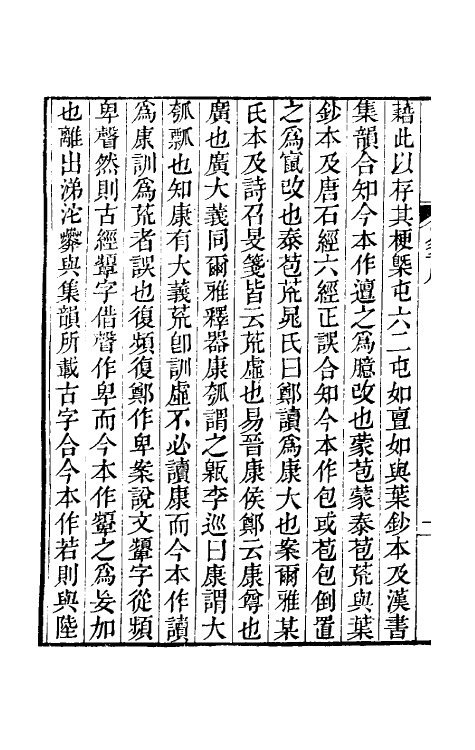 藉此以存其梗槩屯六二屯如亶如與葉鈔本及漢書
集韻合知今本作邅之爲臆改也蒙苞蒙泰苞巟與葉
鈔本及唐石經六經正誤合知今本作包或苞包倒置
之爲竄改也泰苞巟晁氏曰鄭讀爲康大也案爾雅某
氏本及詩召旻箋皆云巟虛也易晉康侯鄭云康尊也
廣也廣大義同爾雅釋器康瓠謂之甈李巡曰康謂大
瓠瓢也知康有大義巟卽訓虛不必讀康而今本作讀
爲康訓爲巟者誤也復頻復鄭作卑案說文顰字從頻
卑聲然則古經顰字借聲作卑而今本作顰之爲妄加
也離出涕沱爇與集韻所載古字合今本作若則與陸